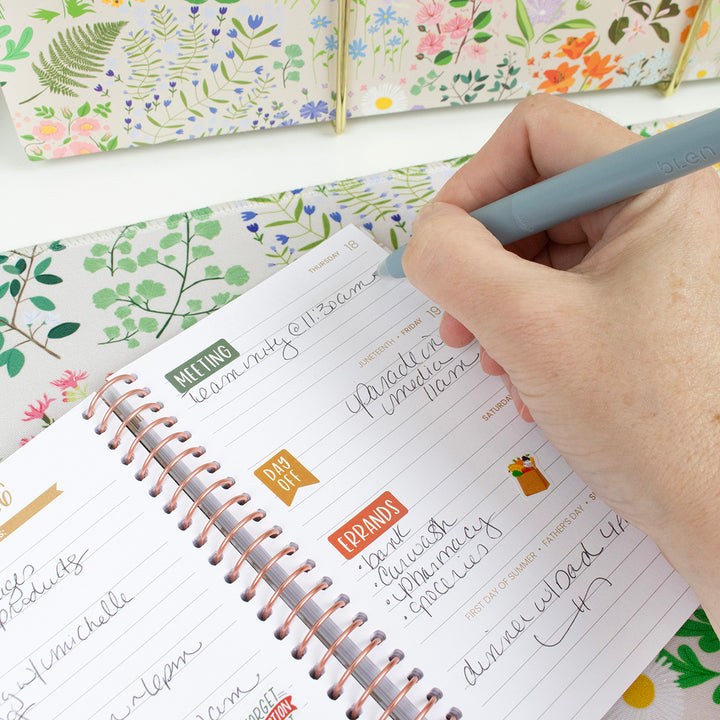 THURSDAY 18
MEETING
team unity @ 11:30am
JUNETEENTH • FRIDAY 19
parade in
media
11am
DAY
OFF
SATURDAY
ERRANDS
• bank
• carwash
• pharmacy
• groceries
FIRST DAY OF SUMMER • FATHER'S DAY • SU
dinner w/ Dad
products
w/ michelle
-1pm
am
pen